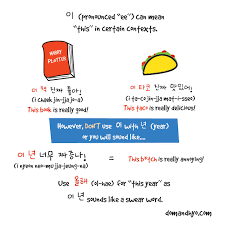 이 (pronounced "ee") can mean
"this" in certain contexts.
HARRY
PLOTTER
이 책 진짜 좋아!
(i chaek jin-jja jo-a)
This book is really good!
이 타코 진짜 맛있어!
(i ta-co jin-jja mat-i-sseo)
This taco is really delicious!
However, DON'T use 이 with 년 (year)
or you will sound like...
이 년 너무 짜증나!
(i nyeon neo-mu jja-jeung-na)
=
This b*tch is really annoying!
Use 올해 (ol-hae) for "this year" as
이 년 sounds like a swear word.
domandhyo.com